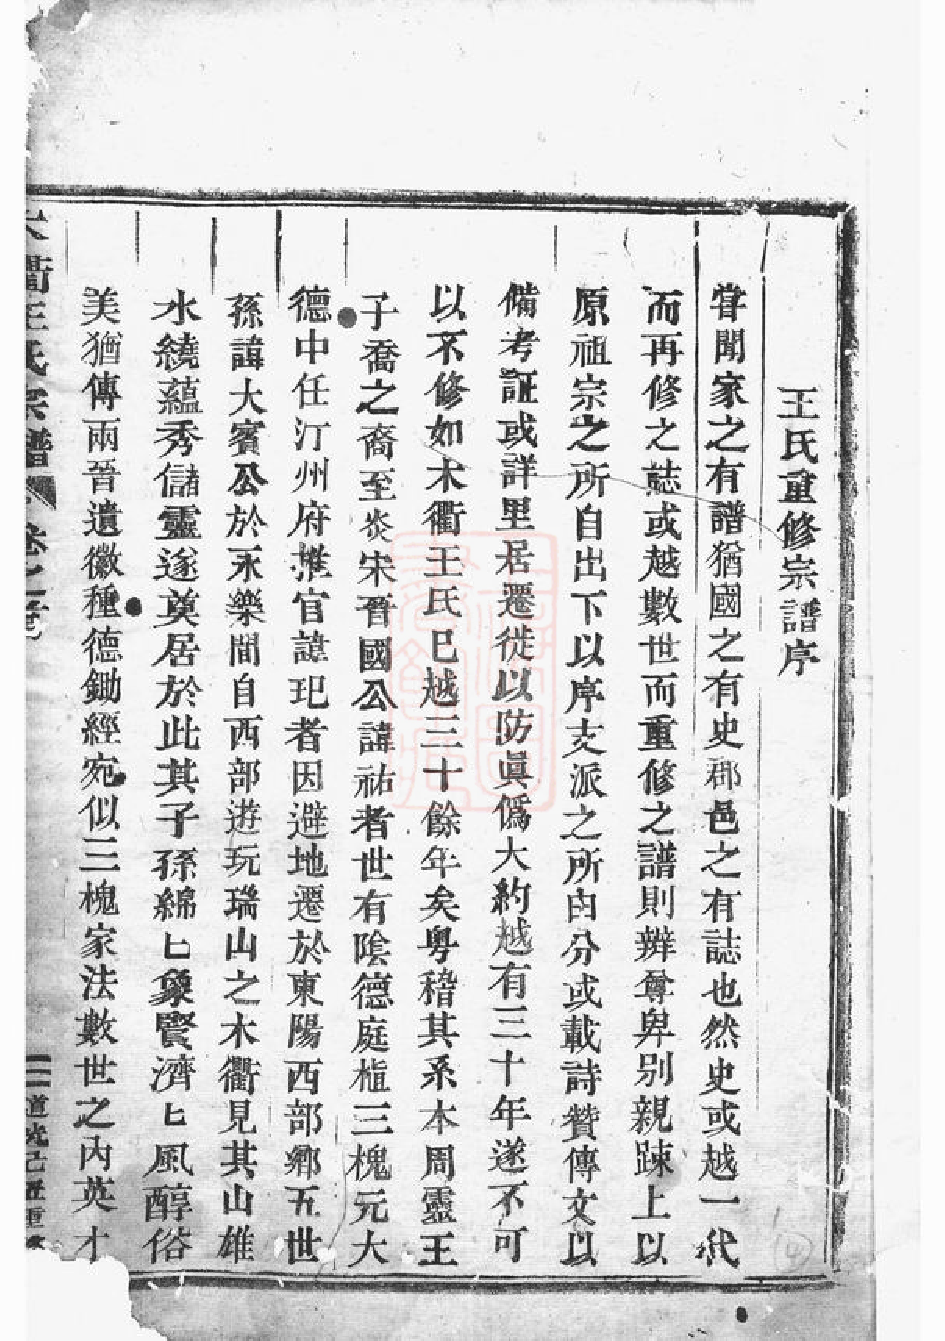 王氏重修宗譜序
甞聞家之有譜猶國之有史郡邑之有誌也然史或越一代
而再修之誌或越數世而重修之譜則辨尊卑別親踈上以
原祖宗之所自出下以序支派之所由分或載詩贊傳文以
備考証或詳里居遷徙以防眞僞大約越有三十年遂不可
以不修如木衢王氏已越三十餘年矣粤稽其系本周靈王
子喬之裔至炎宋晋國公諱祐者世有陰德庭植三槐元大
德中任汀州府推官諱玘者因避地遷於東陽西部鄉五世
孫諱大賓公於永樂間自西部遊玩瑞山之木衢見其山雄
水繞蘊秀儲靈遂奠居於此其子孫綿匕象賢濟匕風醇俗
美猶傳兩晉遺徽種德鋤經宛似三槐家法數世之內英才
木衢王氏宗譜 卷之 道光己酉重修